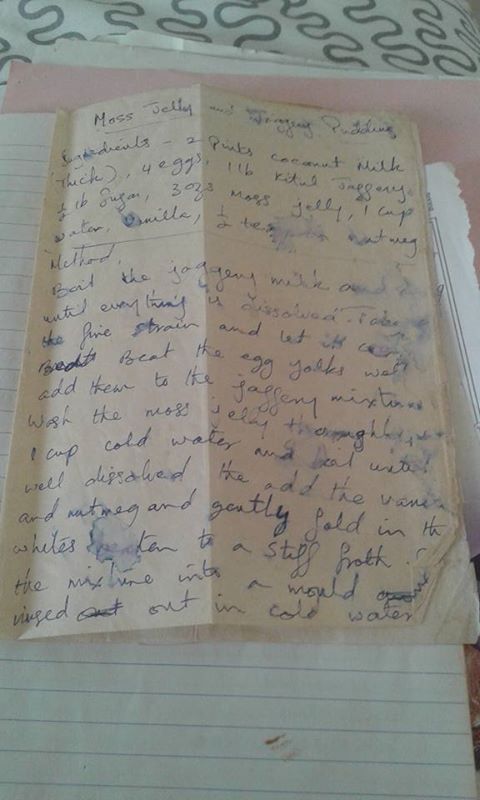 Moss Jelly and Jaggery Pudding
Ingredients - 2 Pints coconut Milk
(Thick), 4 eggs, 1 lb Kitul Jaggery,
½ lb Sugar, 3 ozs Moss jelly, 1 cup
water, Vanilla, ½ tea nutmeg
Method.
Boil the jaggery milk and
until everything is dissolved. Take
the fire strain and let it
Beat the egg yolks well
add them to the jaggery mixture
Wash the moss jelly thoroughly
1 cup cold water and boil until
well dissolved the add the
and nutmeg and gently fold in th
whites beaten to a stiff froth.
the mixture into a mould
rinsed out out in cold water